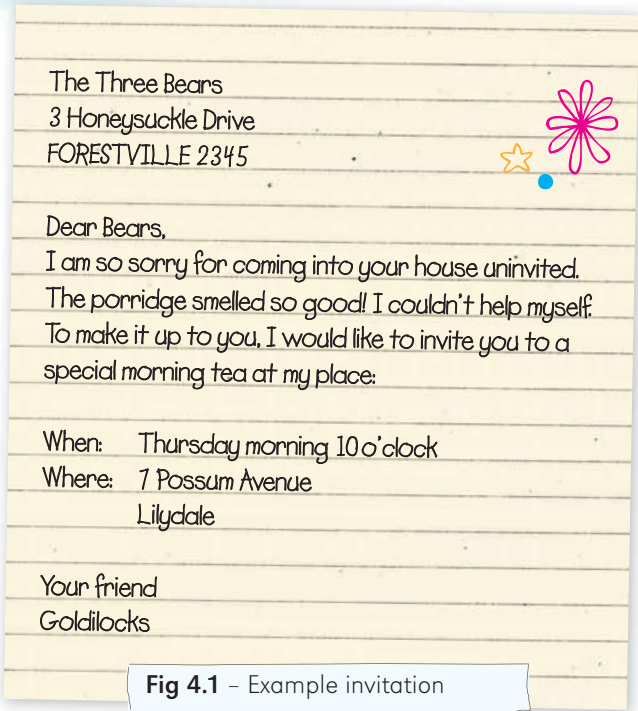 The Three Bears
3 Honeysuckle Drive
FORESTVILLE 2345
Dear Bears,
I am so sorry for coming into your house uninvited.
The porridge smelled so good! I couldn't help myself.
To make it up to you, I would like to invite you to a
special morning tea at my place:
When: Thursday morning 10 o'clock
Where: 7 Possum Avenue
Lilydale
Your friend
Goldilocks
Fig 4.1 – Example invitation